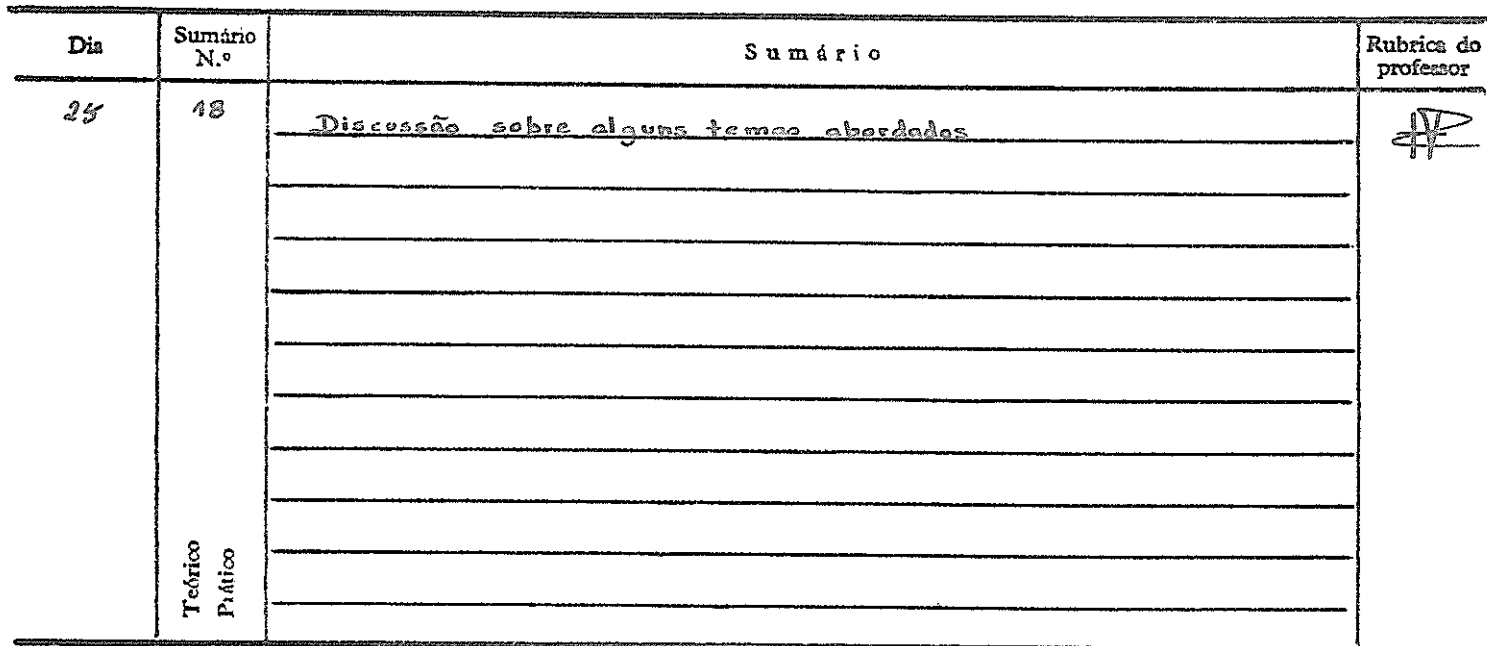 Dia Sumário N.º Sumário Rubrica do professor
25 18 Discussão sobre alguns temas abordados
Teórico
Prático